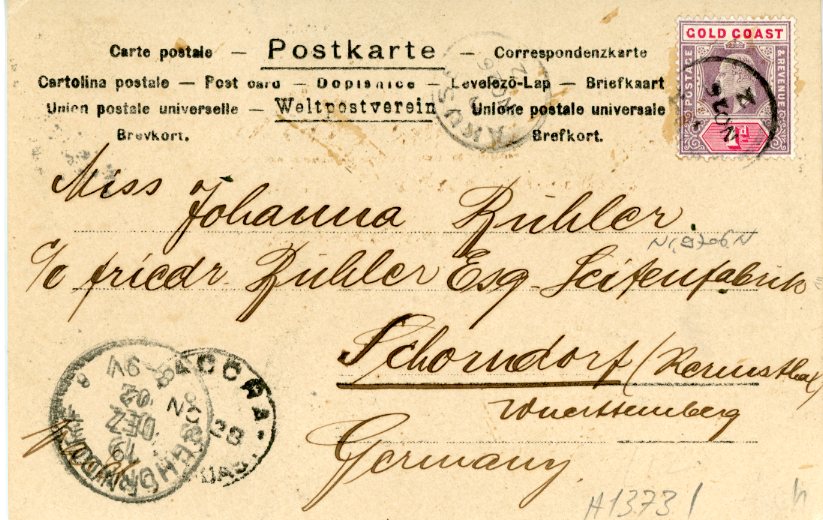 Carte postale — Postkarte — Correspondenzkarte
Cartolina postale — Post card — Dopisnice — Levelező-Lap — Briefkaart
Union postale universelle — Weltpostverein — Unione postale universale
Brevkort. Brefkort.
GOLD COAST
POSTAGE & REVENUE
1d
Miss
Johanna Bühler.
c/o Friedr. Bühler Esq. Seifenfabrik
Schorndorf (Remsthal)
Wuerttemberg
Germany
ACCRA
NO 28
SCHORNDORF
19
DEZ
02
8-9V
A1373